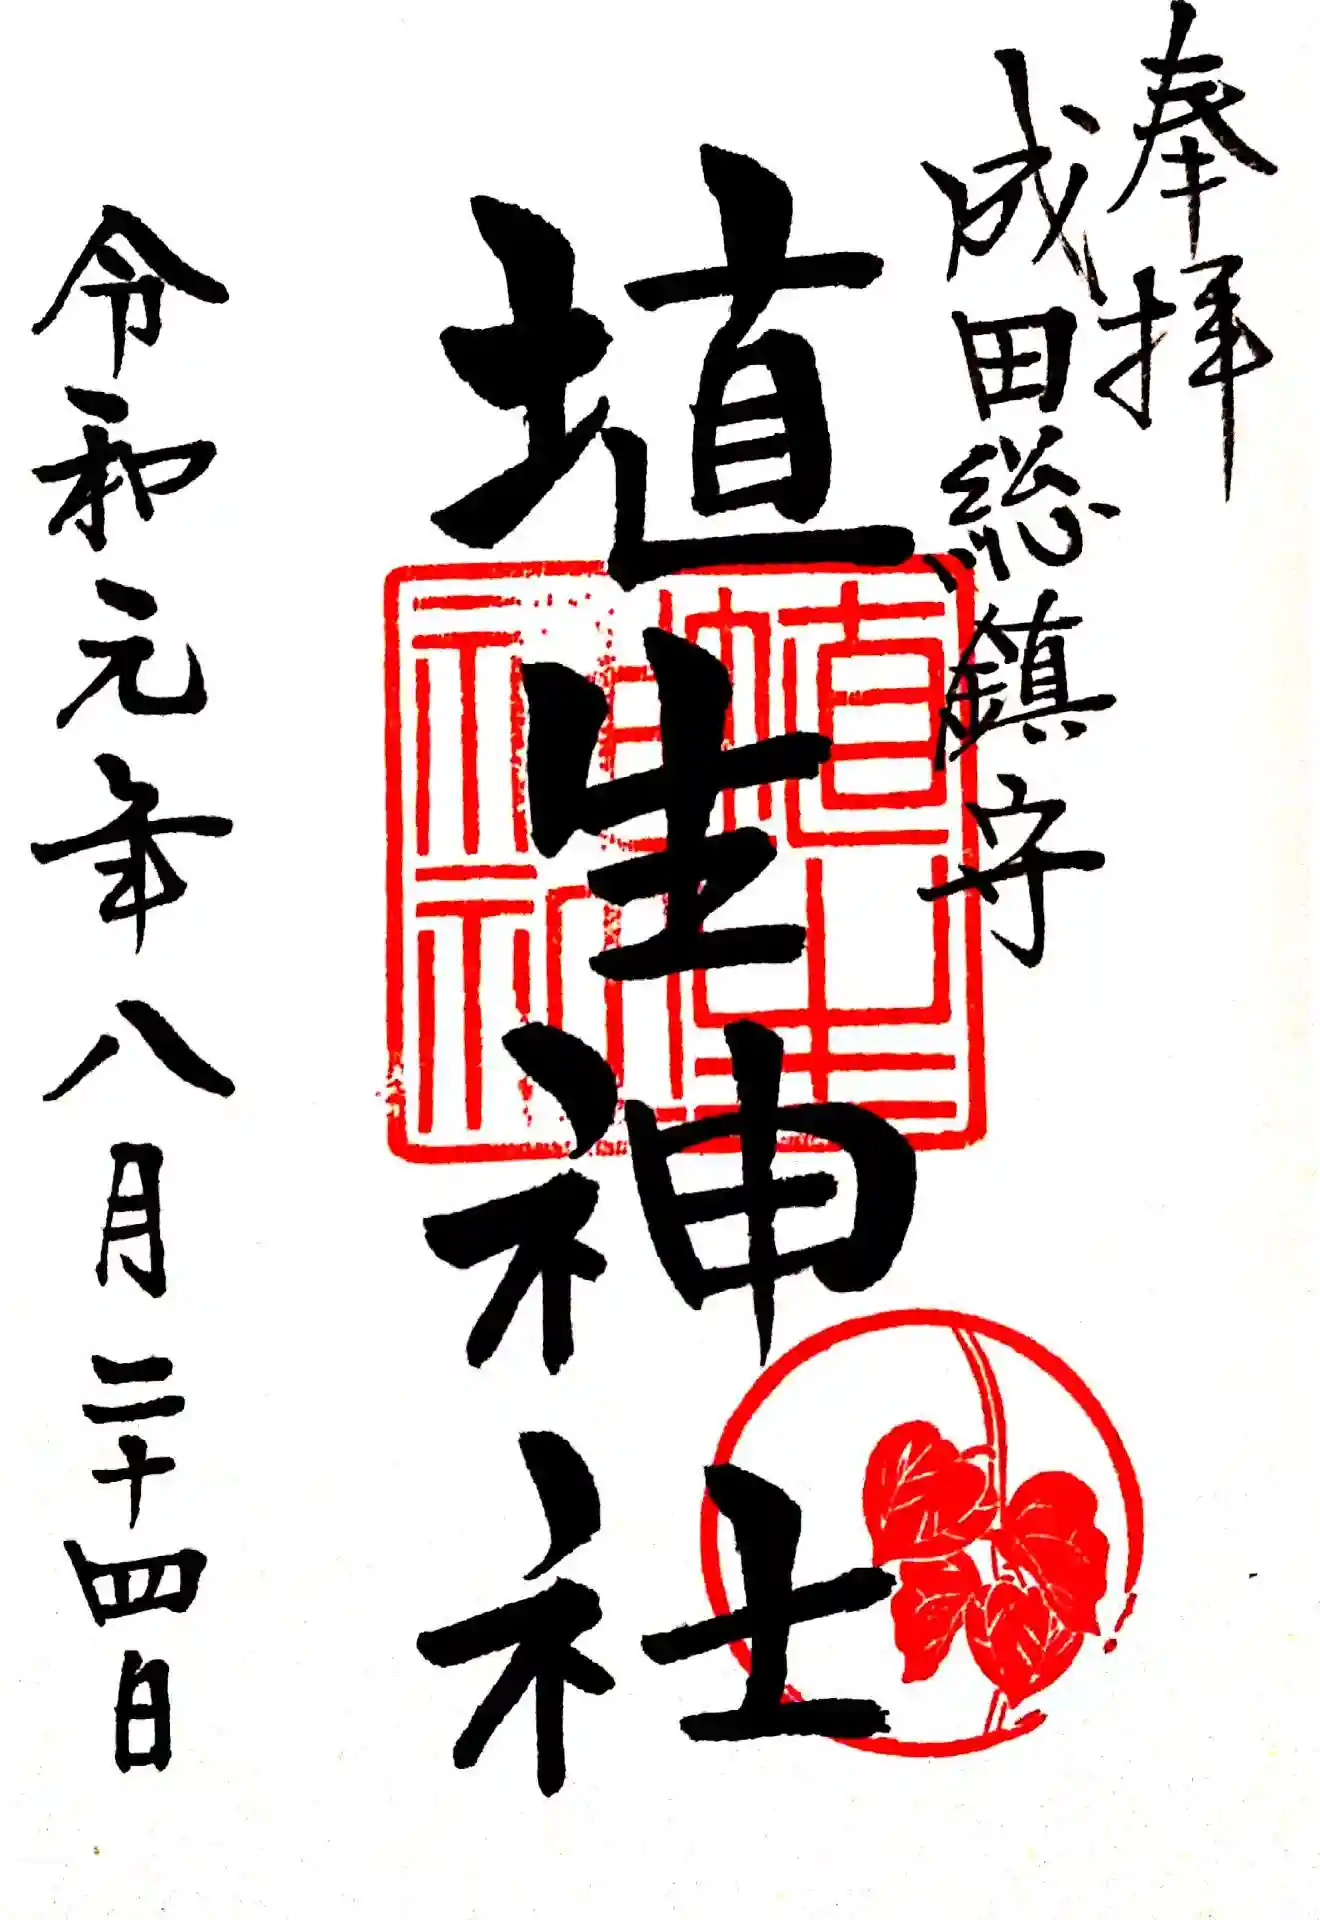 奉拝
成田総鎮守
埴生神社
埴生
神社
令和元年八月二十四日